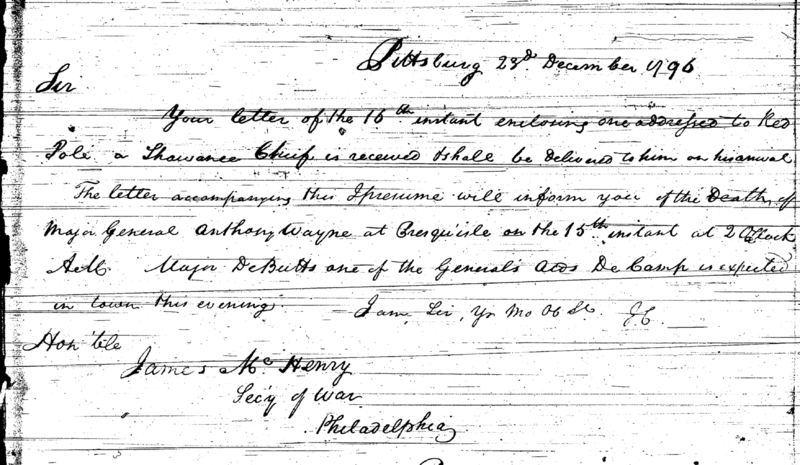 Pittsburg 23d December 1796
Sir
Your letter of the 16th instant enclosing one addressed to Red
Pole a Shawanee Chief is received & shall be delivered to him on his arrival
The letter accompanying this I presume will inform you of the Death of
Major General Anthony Wayne at Presqu'isle on the 15th instant at 2 OClock
A.M. Major DeButts one of the Generals Aids De Camp is expected
in town this evening. I am, Sir, Yr Mo Ob St. J.C.
Hon'ble
James Mc Henry
Sec'y of War
Philadelphia